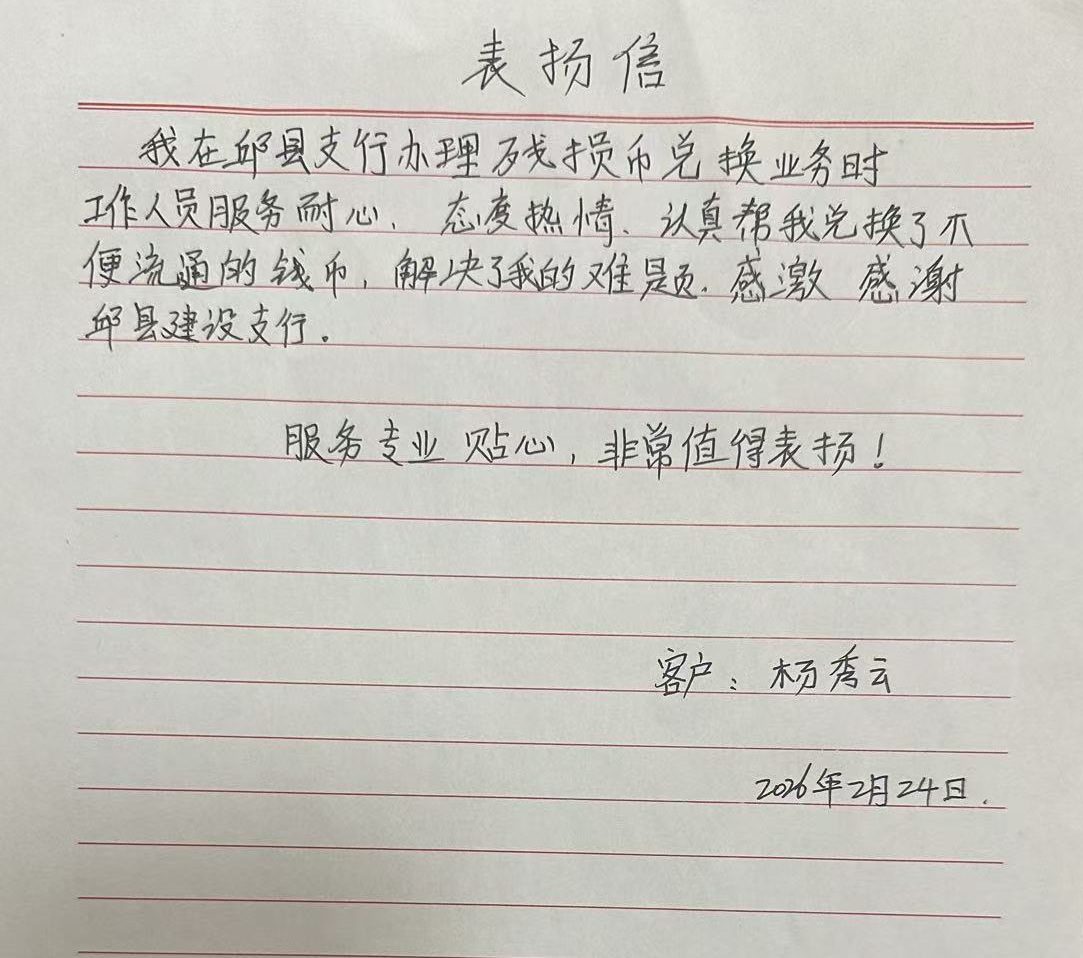 表扬信
我在邱县支行办理残损币兑换业务时
工作人员服务耐心、态度热情、认真帮我兑换了不
便流通的钱币,解决了我的难题.感激 感谢
邱县建设支行。
服务专业 贴心,非常值得表扬!
客户:杨秀云
2026年2月24日.